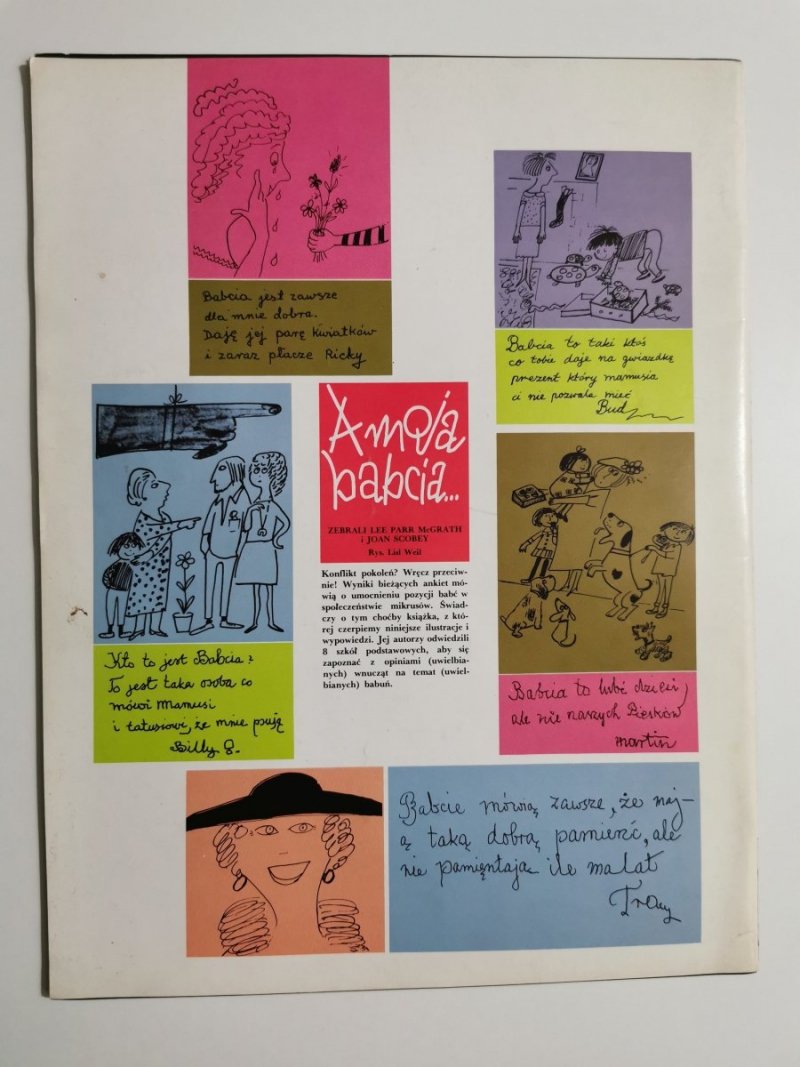 Babcia jest zawsze
dla mnie dobra.
Daję jej parę kwiatków
i zaraz płacze Ricky
Babcia to taki ktoś
co tobie daje na gwiazdkę
prezent który mamusia
ci nie pozwala mieć
Bud
A moja
babcia...
ZEBRALI LEE PARR McGRATH
i JOAN SCOBEY
Rys. Lisl Weil
Konflikt pokoleń? Wręcz przeciw-
nie! Wyniki bieżących ankiet mó-
wią o umocnieniu pozycji babć w
społeczeństwie mikrusów. Świad-
czy o tym choćby książka, z któ-
rej czerpiemy niniejsze ilustracje i
wypowiedzi. Jej autorzy odwiedzili
8 szkół podstawowych, aby się
zapoznać z opiniami (uwielbia-
nych) wnucząt na temat (uwiel-
bianych) babuń.
Kto to jest Babcia?
To jest taka osoba co
mówi Mamusi
i tatusiowi, że mnie psują
Billy 8.
Babcia to lubi dzieci
ale nie naszych Piesków
martin
Babcie mówią zawsze, że maj-
ą taką dobrą pamienć, ale
nie pamiętają ile ma lat
Tracy